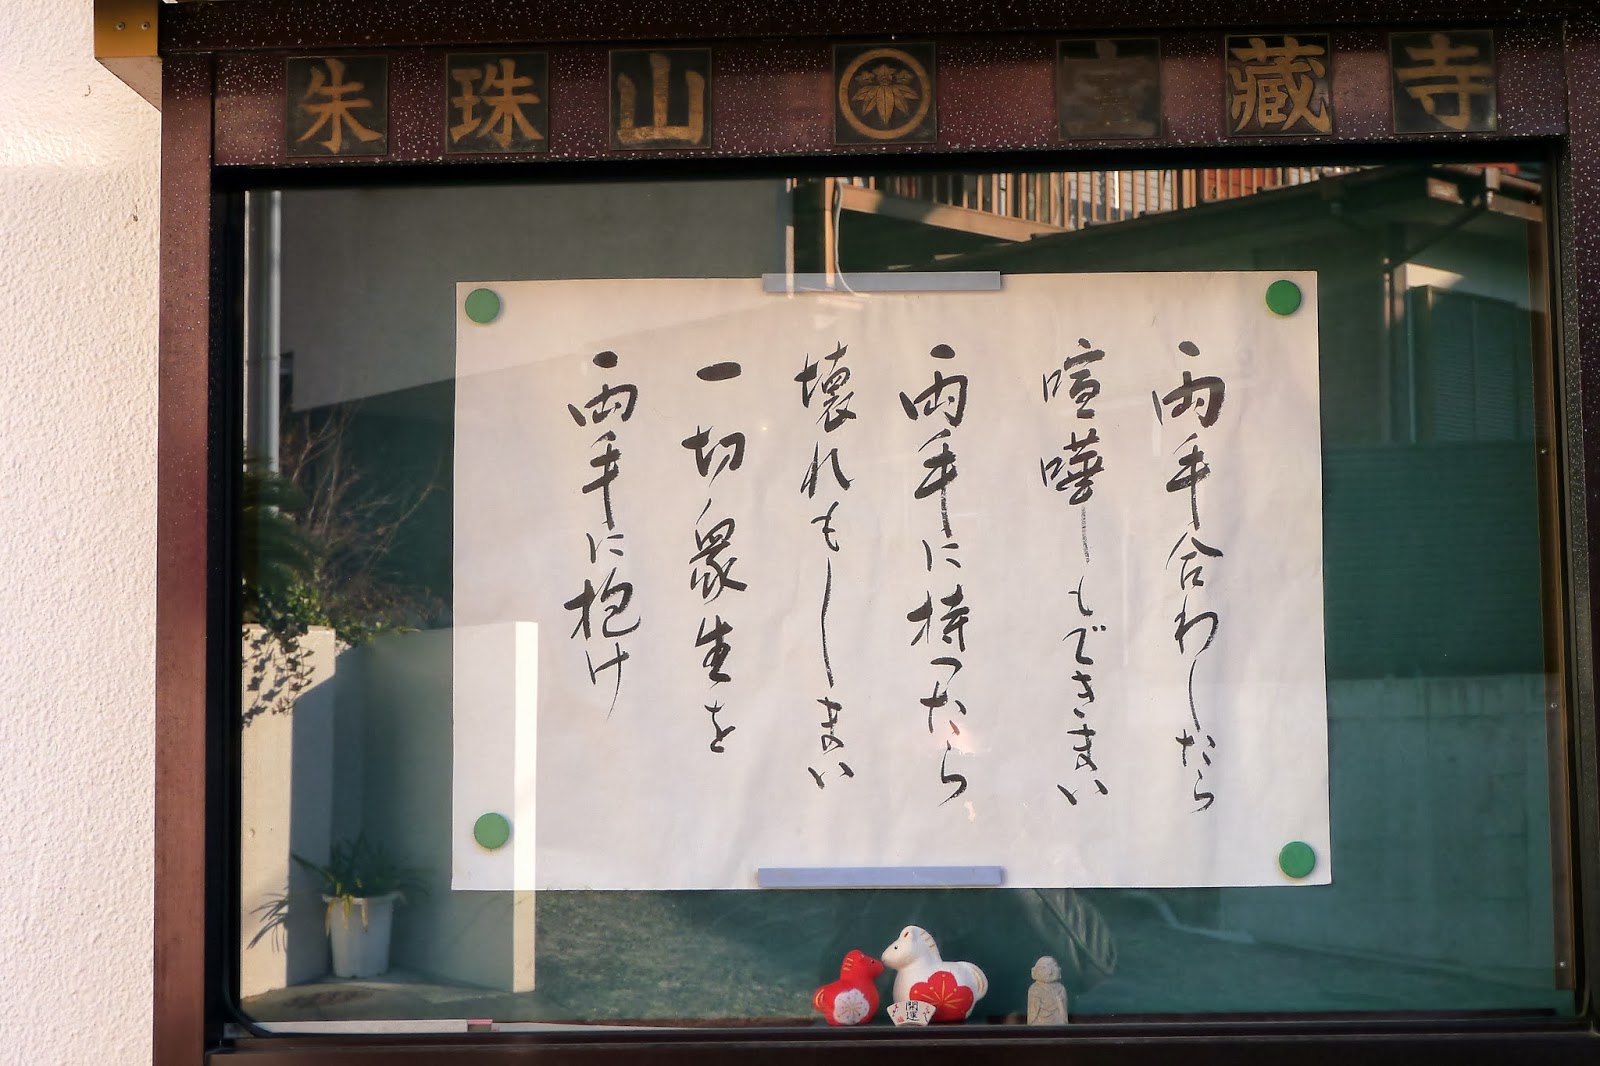 朱珠山 宝蔵寺
両手合わしたら
喧嘩もできまい
両手に持ったら
壊れもしまい
一切衆生を
両手に抱け
開運